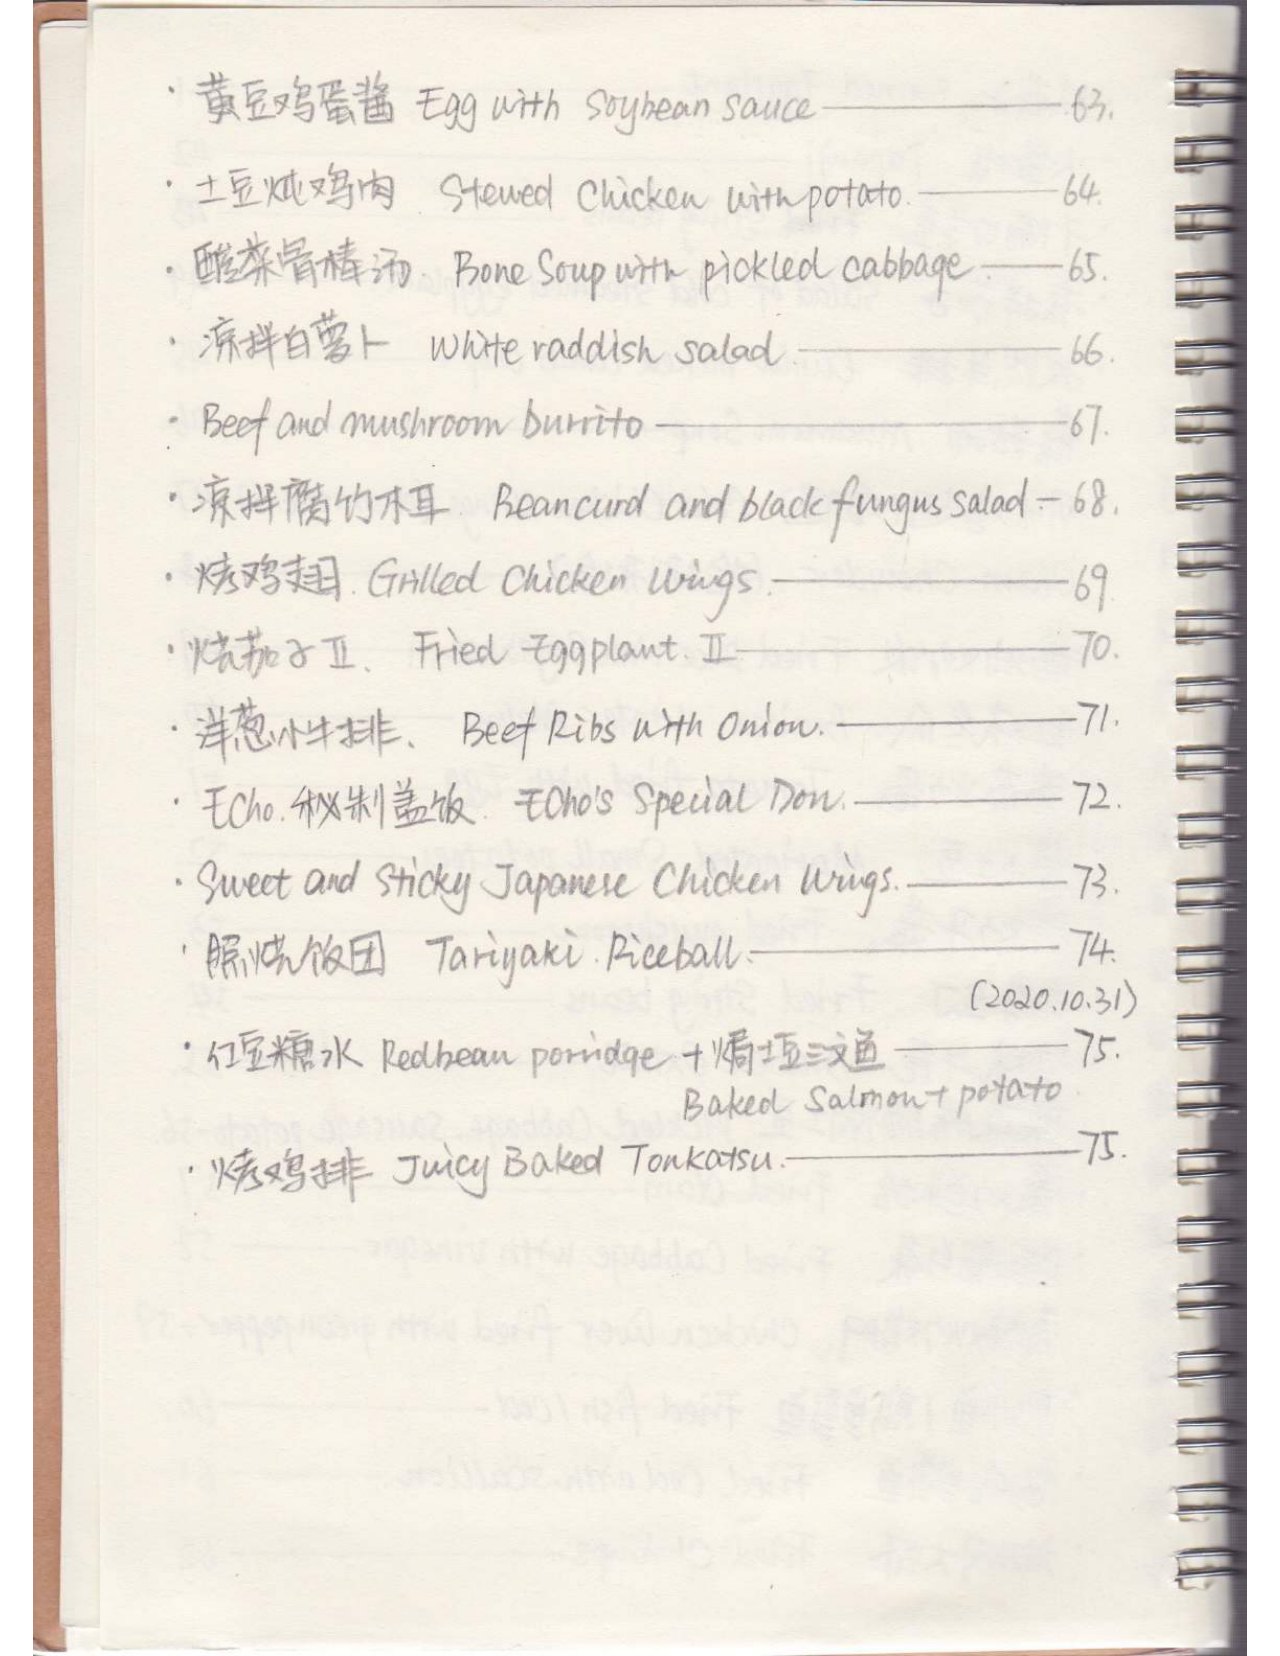 · 黄豆鸡蛋酱 Egg with Soybean sauce 63.
· 土豆炖鸡肉 Stewed Chicken with potato. 64.
· 酸菜骨棒汤. Bone Soup with pickled cabbage 65.
· 凉拌白萝卜 White raddish salad 66.
· Beef and mushroom burrito 67.
· 凉拌腐竹木耳 Beancurd and black fungus salad – 68.
· 烤鸡翅. Grilled Chicken Wings. 69
· 烧茄子 II. Fried Eggplant. II 70.
· 洋葱小牛排、 Beef Ribs with Onion. 71.
· Echo.秘制盖饭. Echo's Special Don. 72.
· Sweet and Sticky Japanese Chicken Wings. 73.
· 照烧饭团 Tariyaki Riceball. 74.
(2020.10.31)
· 红豆糖水 Redbean porridge + 焗土豆三文鱼 75.
Baked Salmon + potato
· 烤鸡排 Juicy Baked Tonkatsu. 75.